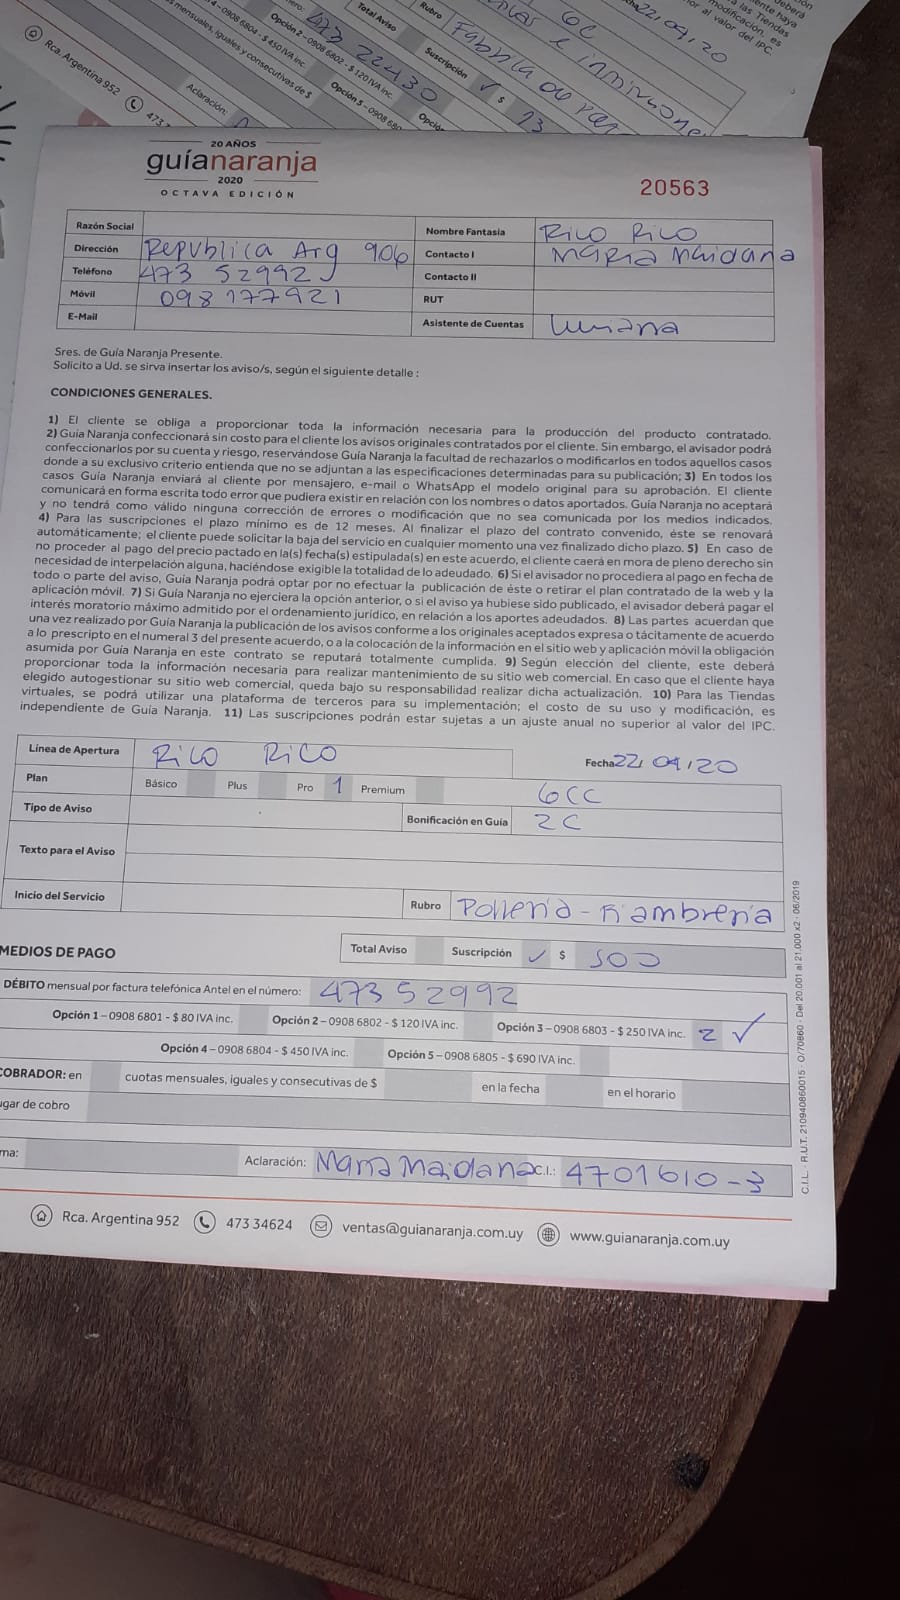 4 - 0908 6804 - $ 450 IVA inc.
mensuales, iguales y consecutivas de $
Rca. Argentina 952
Aclaración:
Opción 2 - 0908 6802 - $ 120 IVA inc.
473 22430
Total Aviso
Rubro
Suscripción
$
Fecha 22/04/20
20 AÑOS
guíanaranja
2020
OCTAVA EDICIÓN
20563
Razón Social
Nombre Fantasía Rico Rico
Dirección Republica Arg 906
Contacto I Maria Maidana
Teléfono 473 52992
Contacto II
Móvil 098 177921
RUT
E-Mail
Asistente de Cuentas
Sres. de Guía Naranja Presente.
Solicito a Ud. se sirva insertar los aviso/s, según el siguiente detalle :
CONDICIONES GENERALES.
1) El cliente se obliga a proporcionar toda la información necesaria para la producción del producto contratado.
2) Guía Naranja confeccionará sin costo para el cliente los avisos originales contratados por el cliente. Sin embargo, el avisador podrá
confeccionarlos por su cuenta y riesgo, reservándose Guía Naranja la facultad de rechazarlos o modificarlos en todos aquellos casos
donde a su exclusivo criterio entienda que no se adjuntan a las especificaciones determinadas para su publicación; 3) En todos los
casos Guía Naranja enviará al cliente por mensajero, e-mail o WhatsApp el modelo original para su aprobación. El cliente
comunicará en forma escrita todo error que pudiera existir en relación con los nombres o datos aportados. Guía Naranja no aceptará
y no tendrá como válido ninguna corrección de errores o modificación que no sea comunicada por los medios indicados.
4) Para las suscripciones el plazo mínimo es de 12 meses. Al finalizar el plazo del contrato convenido, éste se renovará
automáticamente; el cliente puede solicitar la baja del servicio en cualquier momento una vez finalizado dicho plazo. 5) En caso de
no proceder al pago del precio pactado en la(s) fecha(s) estipulada(s) en este acuerdo, el cliente caerá en mora de pleno derecho sin
necesidad de interpelación alguna, haciéndose exigible la totalidad de lo adeudado. 6) Si el avisador no procediera al pago en fecha de
todo o parte del aviso, Guía Naranja podrá optar por no efectuar la publicación de éste o retirar el plan contratado de la web y la
aplicación móvil. 7) Si Guía Naranja no ejerciera la opción anterior, o si el aviso ya hubiese sido publicado, el avisador deberá pagar el
interés moratorio máximo admitido por el ordenamiento jurídico, en relación a los aportes adeudados. 8) Las partes acuerdan que
una vez realizado por Guía Naranja la publicación de los avisos conforme a los originales aceptados expresa o tácitamente de acuerdo
a lo prescripto en el numeral 3 del presente acuerdo, o a la colocación de la información en el sitio web y aplicación móvil la obligación
asumida por Guía Naranja en este contrato se reputará totalmente cumplida. 9) Según elección del cliente, este deberá
proporcionar toda la información necesaria para realizar mantenimiento de su sitio web comercial. En caso que el cliente haya
elegido autogestionar su sitio web comercial, queda bajo su responsabilidad realizar dicha actualización. 10) Para las Tiendas
virtuales, se podrá utilizar una plataforma de terceros para su implementación; el costo de su uso y modificación, es
independiente de Guía Naranja. 11) Las suscripciones podrán estar sujetas a un ajuste anual no superior al valor del IPC.
Línea de Apertura Rico Rico
Fecha 22/04/20
Plan Básico Plus Pro 1 Premium 6CC
Tipo de Aviso
Bonificación en Guía 2C
Texto para el Aviso
Inicio del Servicio
Rubro Polleria - Fiambreria
MEDIOS DE PAGO
Total Aviso Suscripción ✓ $ 500
DÉBITO mensual por factura telefónica Antel en el número: 473 52992
Opción 1 – 0908 6801 - $ 80 IVA inc. Opción 2 – 0908 6802 - $ 120 IVA inc. Opción 3 – 0908 6803 - $ 250 IVA inc. 2 ✓
Opción 4 – 0908 6804 - $ 450 IVA inc. Opción 5 – 0908 6805 - $ 690 IVA inc.
COBRADOR: en cuotas mensuales, iguales y consecutivas de $ en la fecha en el horario
ugar de cobro
ma: Aclaración: Maria Maidana C.I.: 4701610-3
Rca. Argentina 952 473 34624 ventas@guianaranja.com.uy www.guianaranja.com.uy
C.I.L. - R.U.T. 210940860015 - O/70860 - Del 20.001 al 21.000 x2 - 06/2019